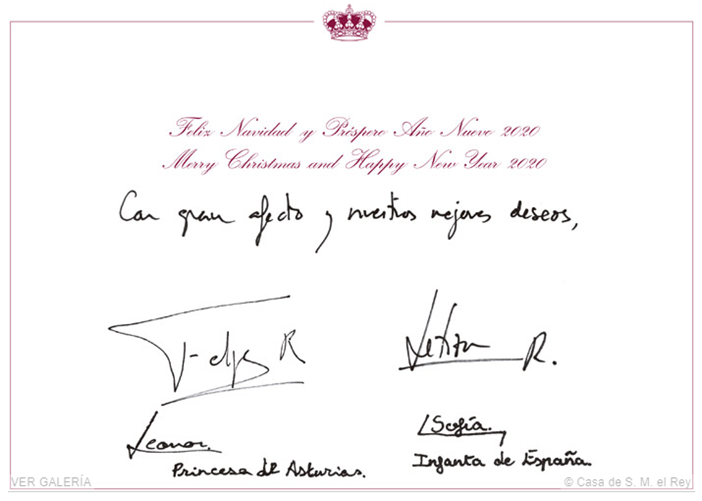 Feliz Navidad y Próspero Año Nuevo 2020
Merry Christmas and Happy New Year 2020
Con gran afecto y nuestros mejores deseos,
Felipe R
Letizia R.
Leonor.
Princesa de Asturias.
Sofía.
Infanta de España.
VER GALERÍA
© Casa de S. M. el Rey